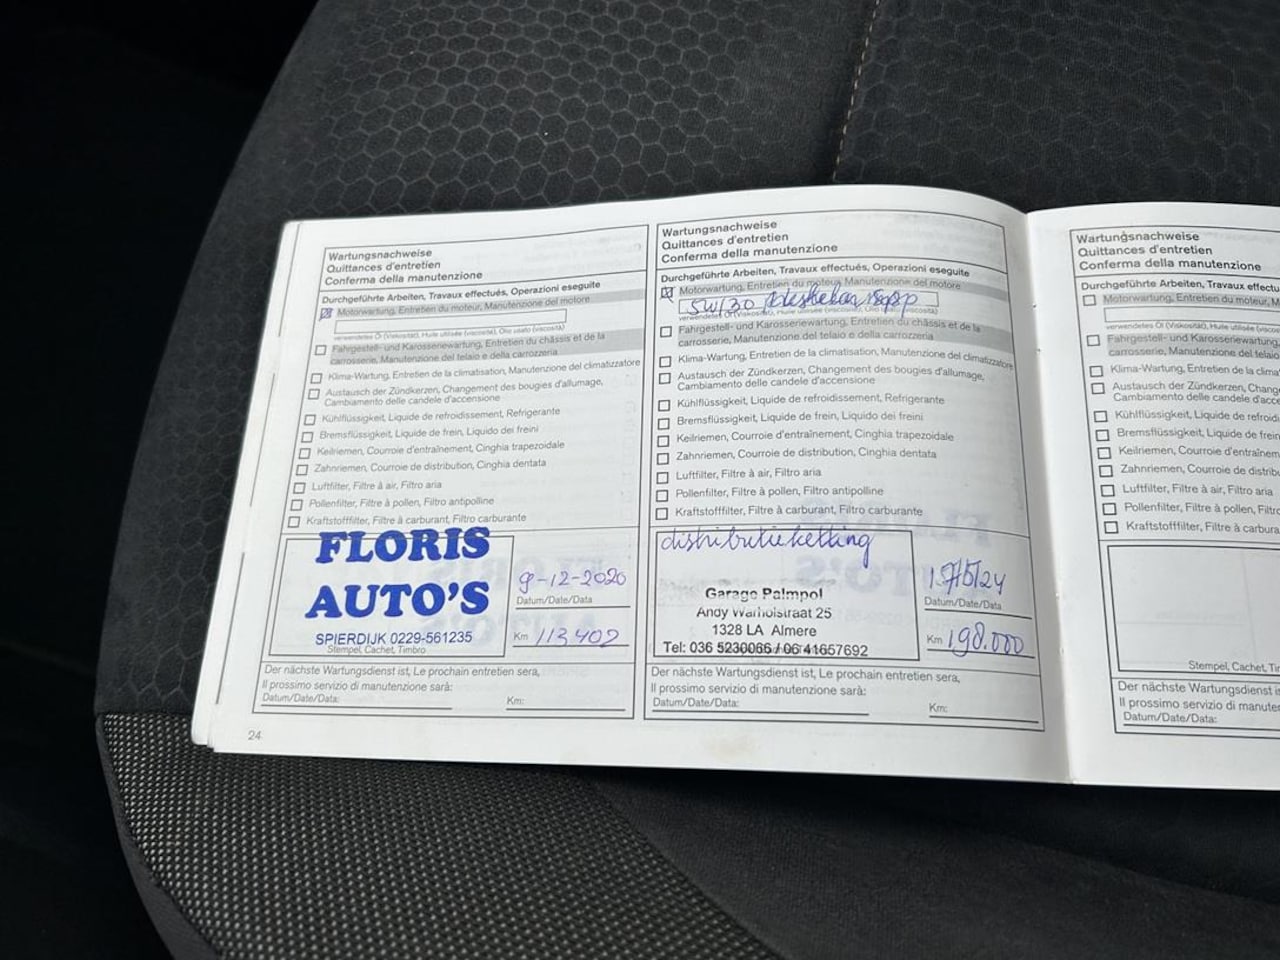 Wartungsnachweise
Quittances d'entretien
Conferma della manutenzione
Durchgeführte Arbeiten, Travaux effectués, Operazioni eseguite
Motorwartung, Entretien du moteur, Manutenzione del motore
verwendetes Öl (Viskosität), Huile utilisée (viscosité), Olio usato (viscosità)
Fahrgestell- und Karosseriewartung, Entretien du châssis et de la
carrosserie, Manutenzione del telaio e della carrozzeria
Klima-Wartung, Entretien de la climatisation, Manutenzione del climatizzatore
Austausch der Zündkerzen, Changement des bougies d'allumage,
Cambiamento delle candele d'accensione
Kühlflüssigkeit, Liquide de refroidissement, Refrigerante
Bremsflüssigkeit, Liquide de frein, Liquido dei freini
Keilriemen, Courroie d'entraînement, Cinghia trapezoidale
Zahnriemen, Courroie de distribution, Cinghia dentata
Luftfilter, Filtre à air, Filtro aria
Pollenfilter, Filtre à pollen, Filtro antipolline
Kraftstofffilter, Filtre à carburant, Filtro carburante
FLORIS
AUTO'S
SPIERDIJK 0229-561235
Stempel, Cachet, Timbro
9-12-2020
Datum/Date/Data
Km 113402
Der nächste Wartungsdienst ist, Le prochain entretien sera,
Il prossimo servizio di manutenzione sarà:
Datum/Date/Data:
Km:
24
Wartungsnachweise
Quittances d'entretien
Conferma della manutenzione
Durchgeführte Arbeiten, Travaux effectués, Operazioni eseguite
Motorwartung, Entretien du moteur, Manutenzione del motore
5W/30
verwendetes Öl (Viskosität), Huile utilisée (viscosité), Olio usato (viscosità)
Fahrgestell- und Karosseriewartung, Entretien du châssis et de la
carrosserie, Manutenzione del telaio e della carrozzeria
Klima-Wartung, Entretien de la climatisation, Manutenzione del climatizzatore
Austausch der Zündkerzen, Changement des bougies d'allumage,
Cambiamento delle candele d'accensione
Kühlflüssigkeit, Liquide de refroidissement, Refrigerante
Bremsflüssigkeit, Liquide de frein, Liquido dei freini
Keilriemen, Courroie d'entraînement, Cinghia trapezoidale
Zahnriemen, Courroie de distribution, Cinghia dentata
Luftfilter, Filtre à air, Filtro aria
Pollenfilter, Filtre à pollen, Filtro antipolline
Kraftstofffilter, Filtre à carburant, Filtro carburante
distributieketting
Garage Palmpol
Andy Warholstraat 25
1328 LA Almere
Tel: 036 5230066 / 06 41657692
Datum/Date/Data
Km 198.000
Der nächste Wartungsdienst ist, Le prochain entretien sera,
Il prossimo servizio di manutenzione sarà:
Datum/Date/Data:
Km:
Wartungsnachweise
Quittances d'entretien
Conferma della manutenzione
Durchgeführte Arbeiten, Travaux effectu
Motorwartung, Entretien du moteur, M
verwendetes Öl (Viskosität), Huile utilisée (viscosité
Fahrgestell- und Karosseriewartung,
carrosserie, Manutenzione del telaio
Klima-Wartung, Entretien de la clima
Austausch der Zündkerzen, Chang
Cambiamento delle candele d'acce
Kühlflüssigkeit, Liquide de refroidi
Bremsflüssigkeit, Liquide de frein
Keilriemen, Courroie d'entraînem
Zahnriemen, Courroie de distribu
Luftfilter, Filtre à air, Filtro aria
Pollenfilter, Filtre à pollen, Filtro
Kraftstofffilter, Filtre à carbura
Stempel, Cachet, Ti
Der nächste Wartungsdienst is
Il prossimo servizio di manute
Datum/Date/Data: